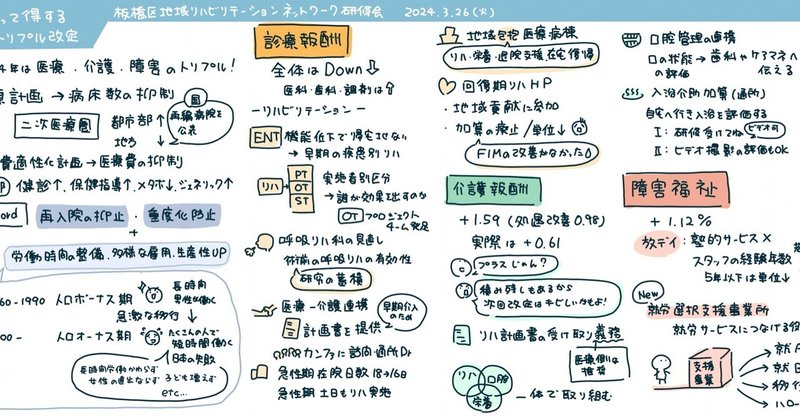 って得する
トリプル改定
板橋区地域リハビリテーションネットワーク研修会 2024.3.26(火)
4年は医療・介護・障害のトリプル!
計画→病床数の抑制
国
再編病院を
公表
二次医療圏
都市部↑
地方↓
費適性化計画→医療費の抑制
健診↑、保健指導↑、メタボ↓、ジェネリック↑
ord
再入院の抑止・重度化防止
+
労働時間の整備、多様な雇用、生産性UP
60-1990 人口ボーナス期
長時間
男性が働く
急激な移行
00- 人口オーナス期
たくさんの人で
短時間働く
日本の失敗
長時間労働かわらず
女性の進出ならず 子ども増えず
etc...
診療報酬
全体はDown↓
医科・歯科・調剤は↑
ーリハビリテーションー
ENT 機能低下で帰宅できない
→早期の疾患別リハ
リハ
PT
OT
ST
実施者別区分
→誰が効果を出すのか
OT プロジェクト
チーム発足
呼吸リハ料の見直し
術前の呼吸リハの有効性
研究の蓄積
医療-介護連携
早期介入
のため
計画書を提供
カンファに訪問・通所Dr
急性期在院日数18→16日
急性期 土日もリハ実施
地域包括医療病棟
リハ・栄養・退院支援、在宅復帰
回復期リハHP
・地域貢献に参加
・加算の廃止/単位↓
FIMの改善がなかった
介護報酬
+1.59(処遇改善0.98)
実際は+0.61
プラスじゃん?
積み残しもあるから
次回改定はキビしいかもよ!
リハ計画書の受け取り義務
医療側は
推奨
リハ
口腔
栄養
一体で取り組む
口腔管理の連携
口の状態→歯科やケアマネへ
の評価 伝える
入浴介助加算(通所)
自宅へ行き入浴を評価する
Ⅰ:研修受けてね ビデオ可
Ⅱ:ビデオ撮影の評価もOK
障害福祉
+1.12%
放デイ:塾的サービス×
スタッフの経験年数
5年以下は単位↓
New
就労選択支援事業所
就労サービスにつなげる役
支援
事業
就
就
移行
ハロー